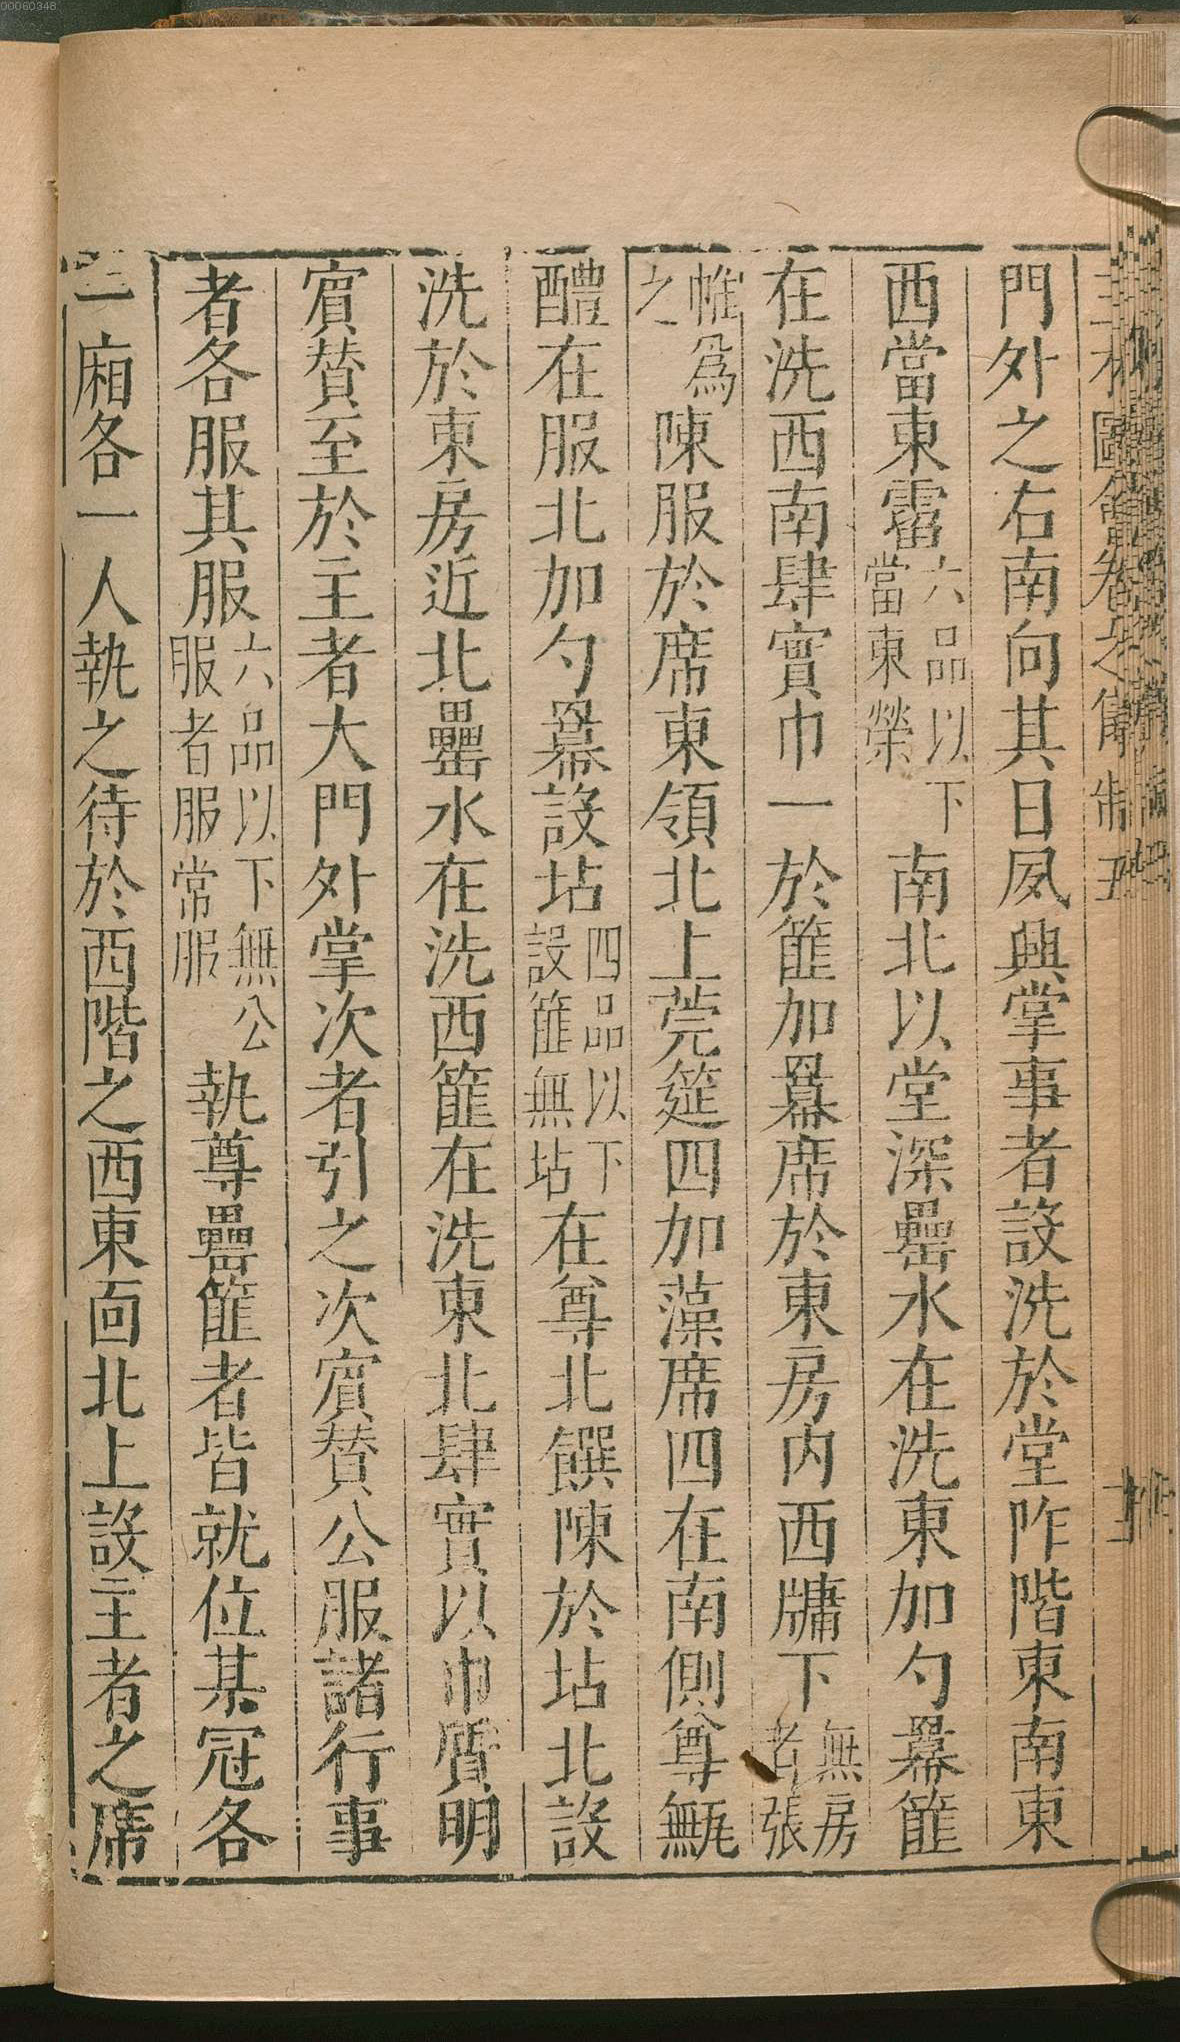 00060348
門外之右南向其日夙興掌事者設洗於堂阼階東南東
西當東霤六品以下當東榮南北以堂深罍水在洗東加勺羃篚
在洗西南肆實巾一於篚加羃席於東房内西牗下無房者張
帷為之陳服於席東領北上莞筵四加藻席四在南側尊甒
醴在服北加勺羃設坫四品以下設篚無坫在尊北饌陳於坫北設
洗於東房近北罍水在洗西篚在洗東北肆實以巾質明
賓賛至於主者大門外掌次者引之次賓賛公服諸行事
者各服其服六品以下無公服者服常服執尊罍篚者皆就位其冠各
一廂各一人執之待於西階之西東面北上設主者之席